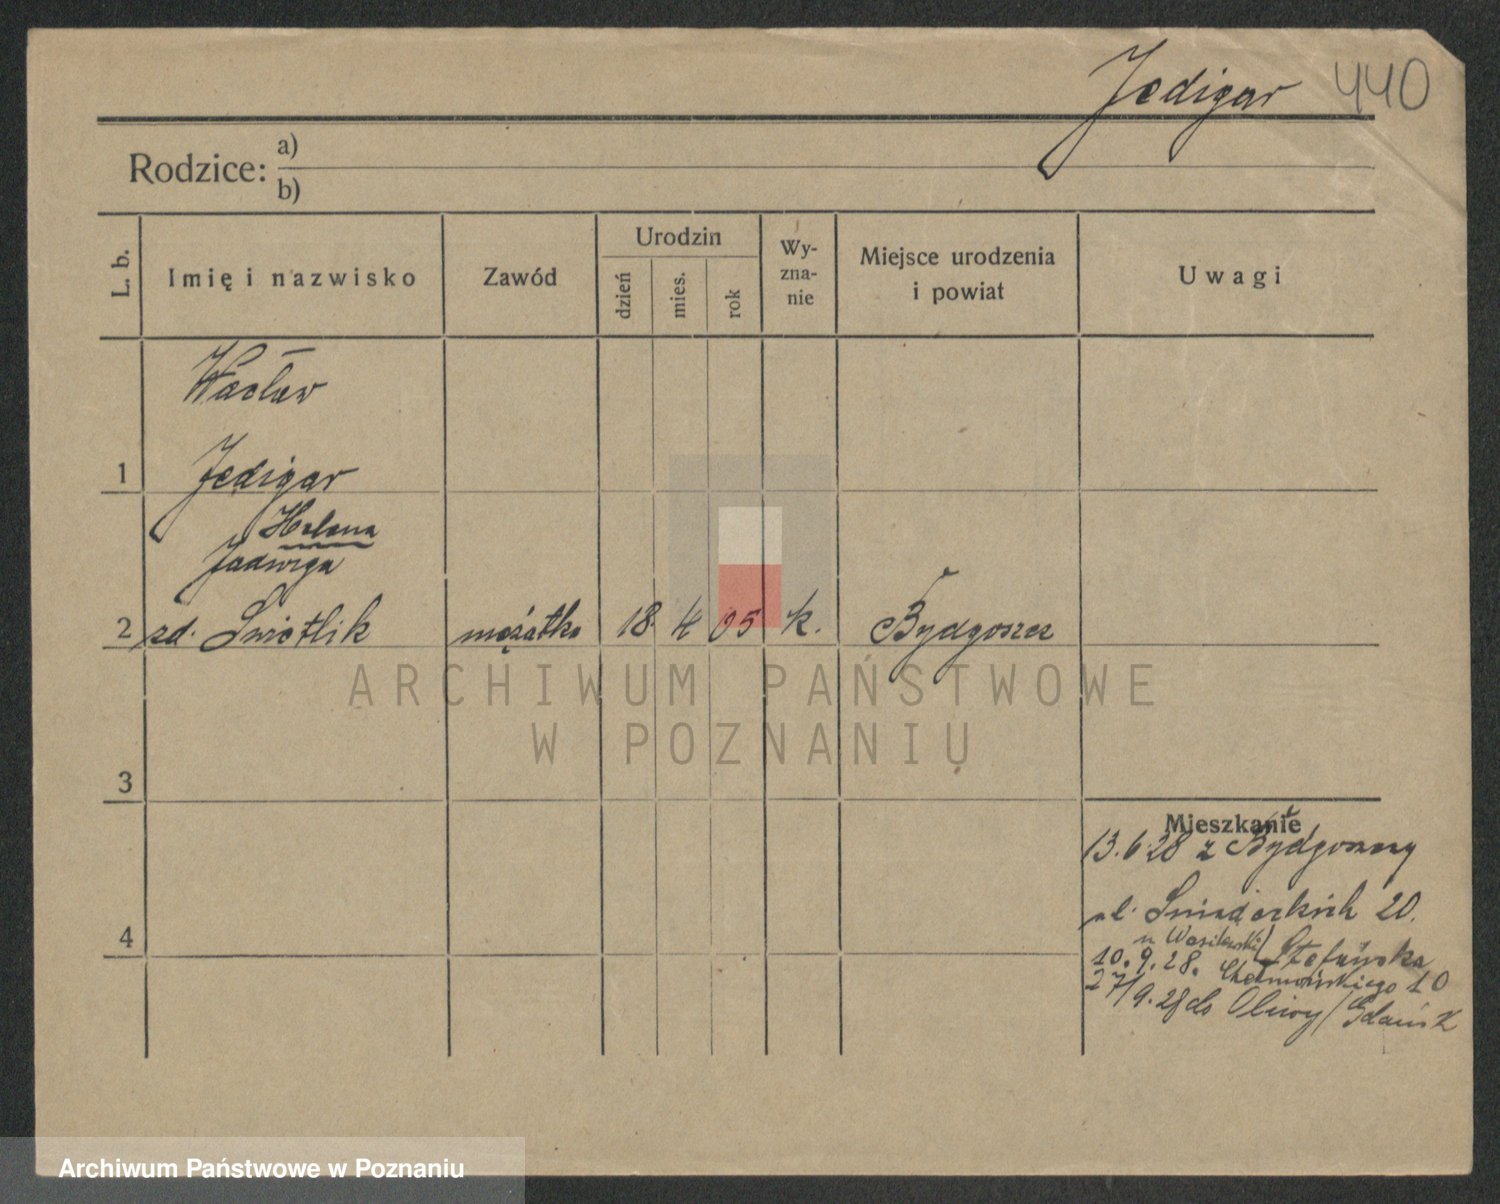 Jedigar 440
Rodzice: a)
b)
L. b.
Imię i nazwisko
Zawód
Urodzin
dzień
mies.
rok
Wy-
zna-
nie
Miejsce urodzenia
i powiat
Uwagi
Wacław
1 Jedigar
Helena
Jadwiga
2 zd. Świetlik mężatka 18. 4 05 k. Bydgoszcz
3
Mieszkanie
13.6.28 z Bydgoszczy
4
ul. Śniadeckich 20.
u Wasilewski / Stefańska
10.9.28. Chełmońskiego 10
27/9.28 do Oliwy / Gdańsk
ARCHIWUM PAŃSTWOWE
W POZNANIU
Archiwum Państwowe w Poznaniu